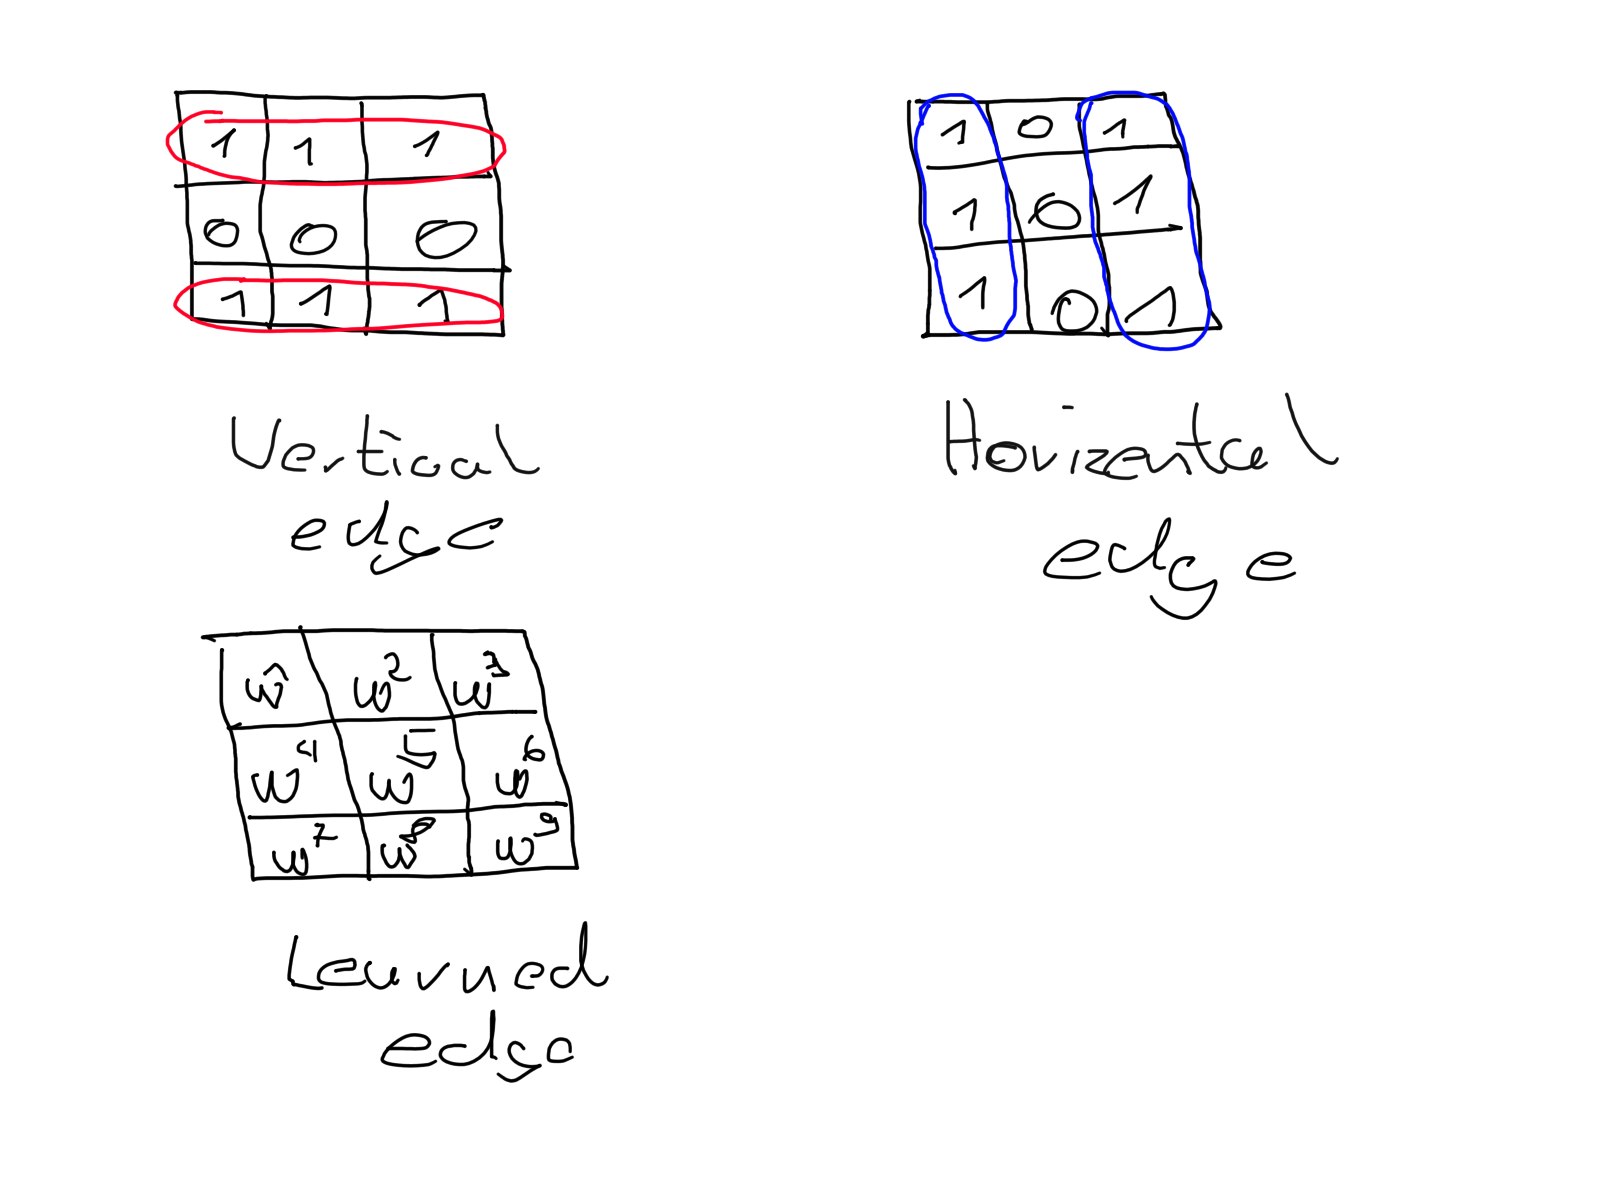 1 1 1
0 0 0
1 1 1
Vertical
edge
1 0 1
1 0 1
1 0 1
Horizental
edge
w1 w2 w3
w4 w5 w6
w7 w8 w9
Learned
edge